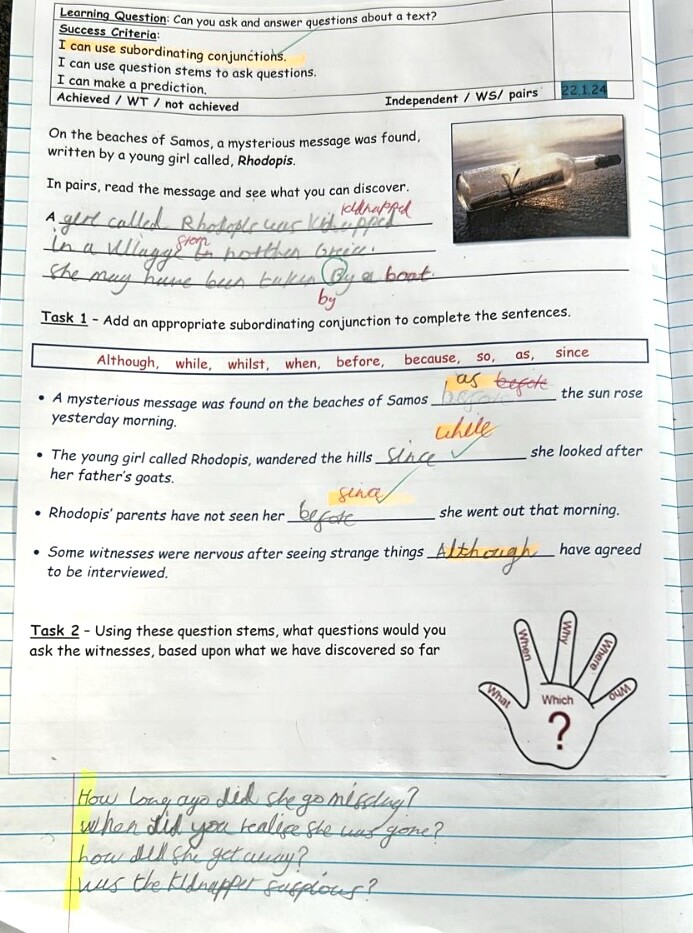 Learning Question: Can you ask and answer questions about a text?
Success Criteria:
I can use subordinating conjunctions.
I can use question stems to ask questions.
I can make a prediction.
Achieved / WT / not achieved Independent / WS/ pairs 22.1.24
On the beaches of Samos, a mysterious message was found,
written by a young girl called, Rhodopis.
In pairs, read the message and see what you can discover.
kidnapped
A girl called Rhodopis was
from
in a in
She may have been taken By a boat.
by
Task 1 – Add an appropriate subordinating conjunction to complete the sentences.
Although, while, whilst, when, before, because, so, as, since
as before
• A mysterious message was found on the beaches of Samos before the sun rose
yesterday morning.
while
• The young girl called Rhodopis, wandered the hills since she looked after
her father's goats.
since
• Rhodopis' parents have not seen her before she went out that morning.
• Some witnesses were nervous after seeing strange things Although have agreed
to be interviewed.
Task 2 – Using these question stems, what questions would you
ask the witnesses, based upon what we have discovered so far
What
When
Why
Where
Who
Which
?
How long ago did she go missing?
When did you realise she was gone?
how did she get away?
was the kidnapper suspious?